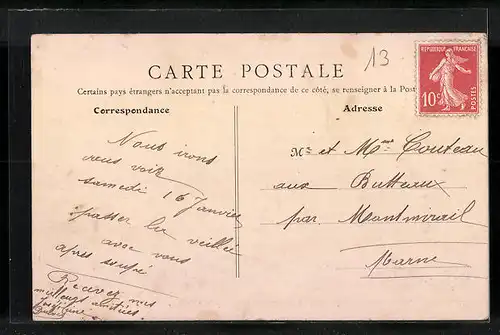 13
RÉPUBLIQUE FRANÇAISE
10c
POSTES
CARTE POSTALE
Certains pays étrangers n'acceptant pas la correspondance de ce côté, se renseigner à la Post
Correspondance
Adresse
Nous irons
vous voir
samedi 16 Janvier
passer la veillée
avec vous
après souper
Recevez nos
meilleures amitiés
Mr et Mme Couteau
aux Butteaux
par Montmirail
Marne